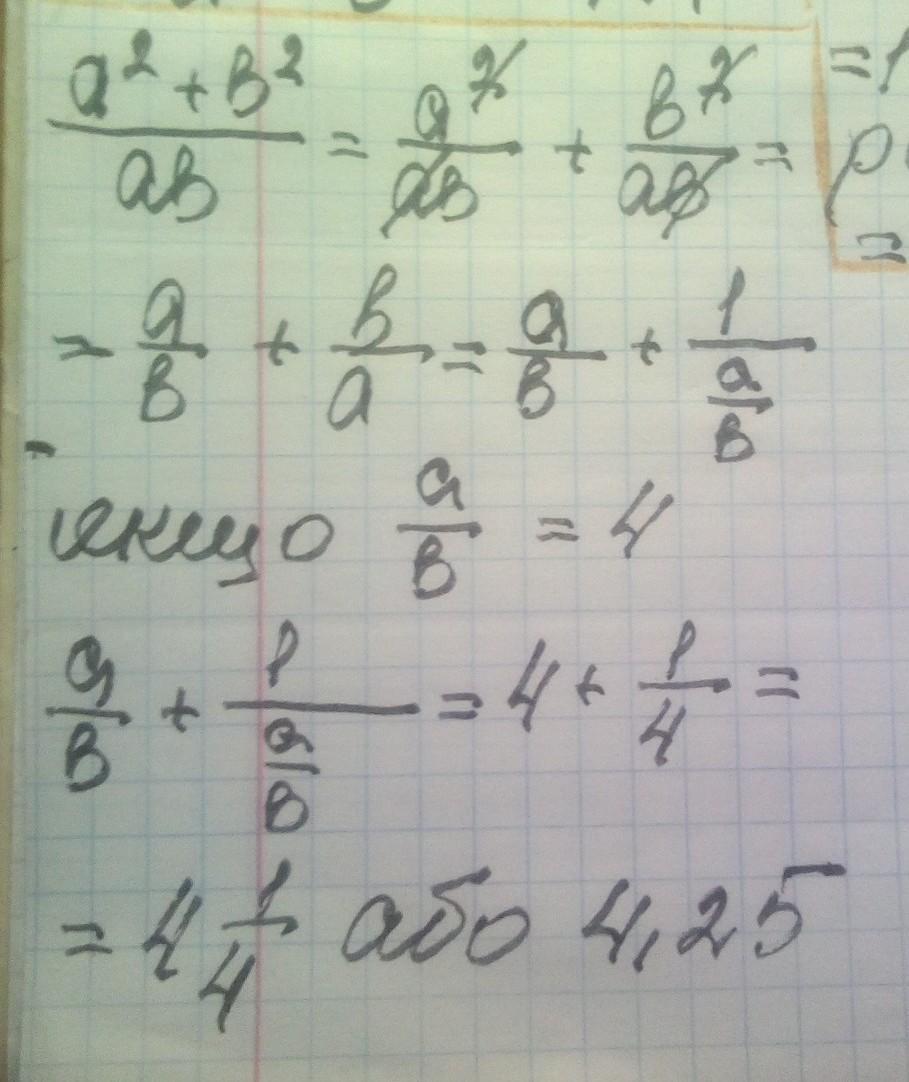 (a² + b²)/(ab) = a²/(ab) + b²/(ab) =
= a/b + b/a = a/b + 1/(a/b)
якщо a/b = 4
a/b + 1/(a/b) = 4 + 1/4 =
= 4 1/4 або 4,25